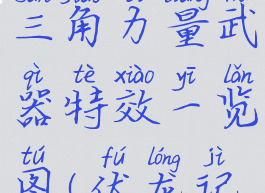 三角力量武
qì tè xiào yī lǎn
器特效一览
tú fú lóng jì
图(伏龙记